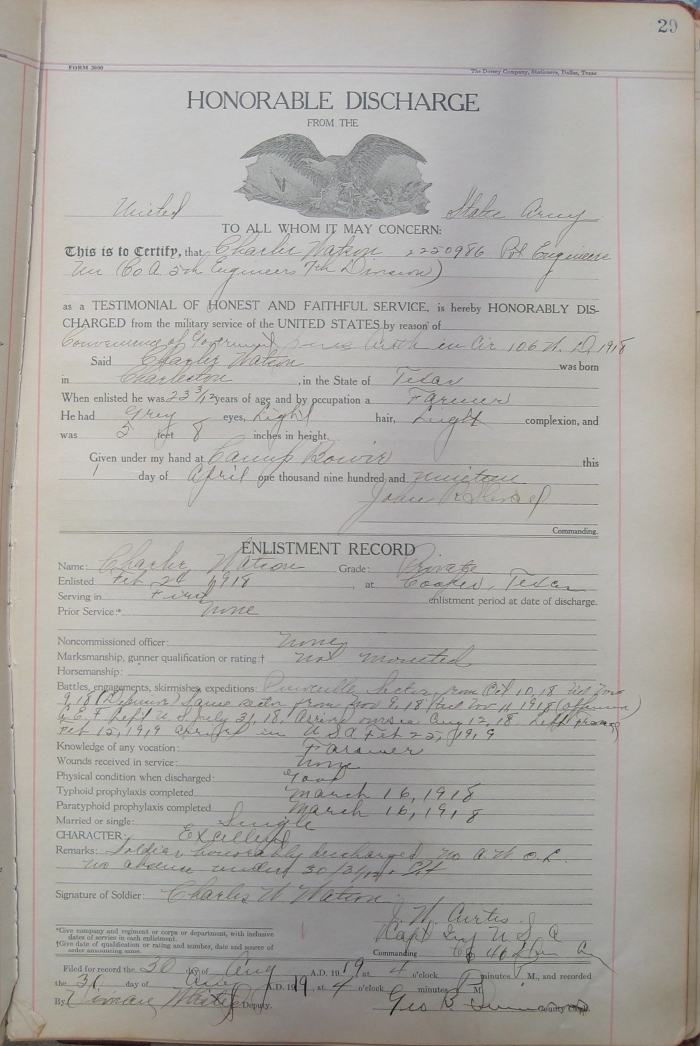 29
FORM 3000
The Dorsey Company, Stationers, Dallas, Texas
HONORABLE DISCHARGE
FROM THE
United States Army
TO ALL WHOM IT MAY CONCERN:
This is to Certify, that Charlie Watson 2250986 Pvt Engineers
Un (Co A 5th Engineers 7th Division)
as a TESTIMONIAL OF HONEST AND FAITHFUL SERVICE, is hereby HONORABLY DIS-
CHARGED from the military service of the UNITED STATES by reason of
Convenience of Government Cir 106 W. D. 1918
Said Charlie Watson was born
in Charleston, in the State of Texas
When enlisted he was 23 3/12 years of age and by occupation a Farmer
He had Grey eyes, Light hair, Light complexion, and
was 5 feet 8 inches in height.
Given under my hand at Camp Bowie this
1 day of April one thousand nine hundred and nineteen
Commanding.
ENLISTMENT RECORD
Name: Charlie Watson Grade: Private
Enlisted Feb 26 1918 at Cooper, Texas
Serving in First enlistment period at date of discharge.
Prior Service:* None
Noncommissioned officer: None
Marksmanship, gunner qualification or rating:† Not mounted
Horsemanship:
Battles, engagements, skirmishes, expeditions: Puvenelle Sector from Oct 10, 18 till Nov
9, 18 (Defensive) Same sector from Nov 9, 18 till Nov 11, 1918 (offensive)
A. E. F. Left U S July 31, 18. Arrive overseas Aug 12, 18. Left France
Feb 15, 1919 arrived in U S A Feb 25, 1919
Knowledge of any vocation: Farmer
Wounds received in service: None
Physical condition when discharged: Good
Typhoid prophylaxis completed March 16, 1918
Paratyphoid prophylaxis completed March 16, 1918
Married or single: Single
CHARACTER: Excellent
Remarks: Soldier honorably discharged. No A W O L
No absence under
Signature of Soldier: Charles W Watson
J. W. Curtis
Capt Inf U S A
Commanding
*Give company and regiment or corps or department, with inclusive
dates of service in each enlistment.
†Give date of qualification or rating and number, date and source of
order announcing same.
Filed for record the 30 day of Aug A.D. 1919 at 4 o'clock minutes P M., and recorded
the 31 day of Aug A.D. 1919, at 4 o'clock minutes P M.
By Deputy. Geo B County Clerk.